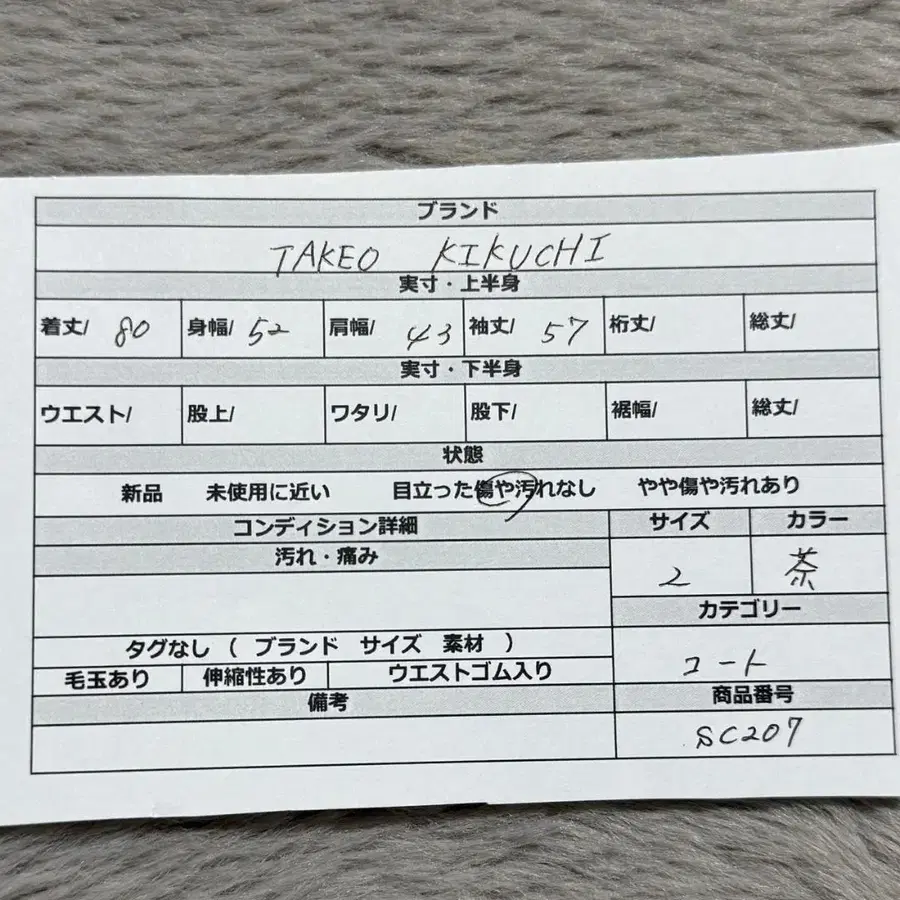 ブランド
TAKEO KIKUCHI
実寸・上半身
着丈/ 80 身幅/ 52 肩幅/ 43 袖丈/ 57 裄丈/ 総丈/
実寸・下半身
ウエスト/ 股上/ ワタリ/ 股下/ 裾幅/ 総丈/
状態
新品 未使用に近い 目立った傷や汚れなし やや傷や汚れあり
コンディション詳細 サイズ カラー
汚れ・痛み
2 茶
カテゴリー
タグなし ( ブランド サイズ 素材 )
コート
毛玉あり 伸縮性あり ウエストゴム入り
備考 商品番号
SC207